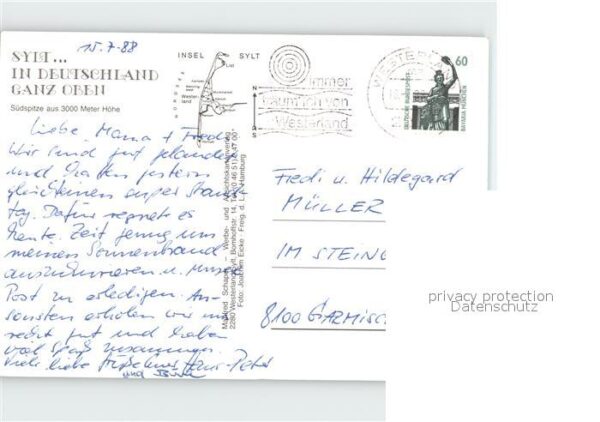 15.7.88
SYLT...
IN DEUTSCHLAND
GANZ OBEN
Südspitze aus 3000 Meter Höhe
INSEL SYLT
List
Wester-
land
NORDSEE
Immer
traumhaft von
Westerland
WESTERLAND
60
DEUTSCHE BUNDESPOST
BAVARIA MÜNCHEN
Liebe Mama + Fredi
Wir sind gut gelandet
und hatten gestern
gleich einen super Strand-
tag. Dafür regnet es
heute. Zeit genug uns
meinen Sonnenbrand
auszukurieren u. unsere
Post zu erledigen. An-
sonsten erholen wir uns
recht gut und haben
viel Spaß zusammen.
Viele liebe Hans-Peter
und
Manfred Schaper – Werbe- und Ansichtskartenverlag
2280 Westerland/Sylt, Bomhoffstr. 14, Tel. (0 46 51) 2 47 00
Foto: Joachim Eicke · Freig. d. L. A. Hamburg
Fredi u. Hildegard
MÜLLER
IM STEING
8100 GARMISCH
privacy protection
Datenschutz